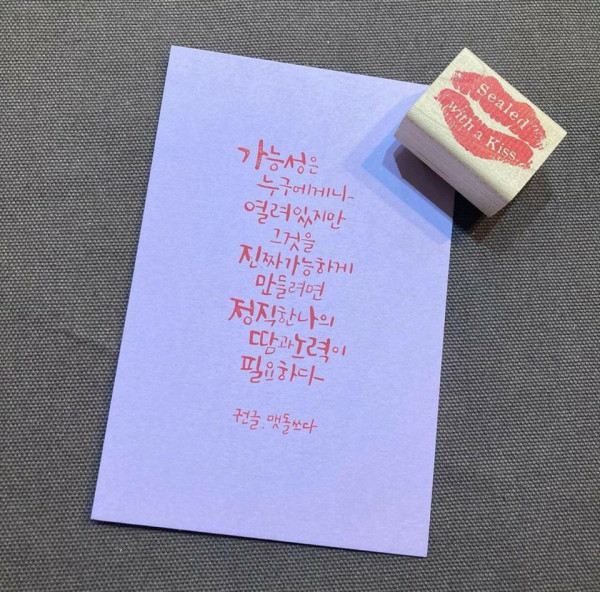 가능성은
누구에게나
열려있지만
그것을
진짜가능하게
만들려면
정직한나의
땀과노력이
필요하다
귄글. 맷돌쓰다
Sealed
with a Kiss